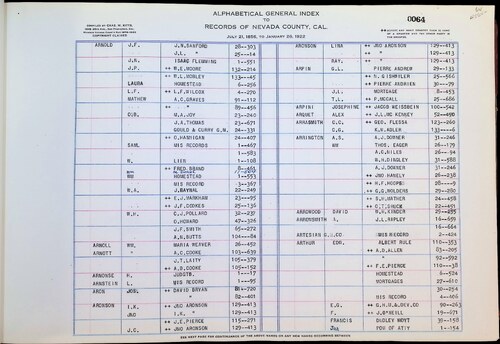 ALPHABETICAL GENERAL INDEX
TO
RECORDS OF NEVADA COUNTY, CAL.
JULY 21, 1856, TO JANUARY 29, 1922
0064
ARNOLD J.E. J.N. SANFORD 28-303
J.L. " 25-14
J.N. ISAAC FLEMMING 1-551
J.P. ++ W.E. MOORE 132-214
++ B.L. MORLEY 133-45
LAURA HOMESTEAD 6-256
L.F. ++ L.F. WILCOX 4-270
MATHER A.C. GRAVES 91-112
++ " 89-456
M.A. JOY 23-240
J.A. THOMAS 23-671
GOULD & CURRY G.M. 24-331
++ O. HANNIGAN 24-407
SAML MIS RECORDS 1-467
" 1-583
W. LIEN 1-108
++ FRED. BRAND 8-463
WM HOMESTEAD 1-553
MIS RECORD 3-367
W.A. J. BAYHA 22-249
++ E.J. VARNHAM 23-95
++ J.F. COOKES 25-136
W.H. C.J. POLLARD 32-237
O. HOWARD 47-326
J.F. SMITH 65-272
A.H. BUTTS 104-84
ARNOLL WM. MARIA WERVER 26-452
ARNOTT " A.C. COOKE 103-639
J.T. LAITY 105-379
++ A.B. COOKE 105-152
ARNONSE H. JUDGTB. 1-17
ARNSTEIN L. MIS RECORD 1-95
AROS JOSE ++ DAVID BRYAN 81-720
" 82-401
ARONSON I.K. ++ JNO ARONSON 129-413
JNO I.K. " ++ 129-413
++ J.E. PIERCE 115-271
J.C. ++ JNO ARONSON 129-413
ARONSON LINA ++ JNO ARONSON 129-413
RAY. ++ " 129-413
ARPIN G.L. PIERRE ANDREN 29-133
++ N. GISHWILER 25-566
++ PIERRE ANDRIEN 30-79
J.L. MORTGAGE 8-453
T.L. ++ P. MCCALL 25-666
ARPINI JOSEPHINE ++ JACOB WEISSBEIN 100-542
ARQUET ALEX ++ J.L. MC KENNEY 52-490
ARRASMITH C.C. ++ GEO. FLESSA 123-260
C.G. K.H. ADLER 133-6
ARRINGTON A.S. A.J. DOWNER 31-246
WM THOS. EAGER 26-179
A.G. NILES 26-94
W.H. DINGLEY 31-588
A.J. DOWNER 31-246
++ JNO HANELY 26-238
++ H.F. HOOPER 28-9
++ G.G. WILDERS 29-280
++ S.H. MATHER 24-458
++ C.T. TUCK 25-451
ARROWOOD DAVID W.H. KINDER 29-495
ARROWSMITH R. J.L. RIPLEY 16-659
++ " 16-664
ARTESIAN MIS RECORD 2-424
ARTHUR EDR. ALBERT RULE 110-353
++ A.D. ALLER 83-205
++ " 92-592
++ F.E. PIERCE 110-38
HOMESTEAD 6-524
MORTGAGES 27-610
MIS RECORD 4-406
E.G. ++ G.H.U. & DEV. CO 90-263
F. ++ J. O'NEILL 19-671
FRANCIS DADLEY HOYT 39-158
JNO POW OF ATTY 1-154
SEE NEXT PAGE FOR CONTINUANCE OF THE ABOVE NAMES OR ANY NEW NAMES OCCURRING BETWEEN